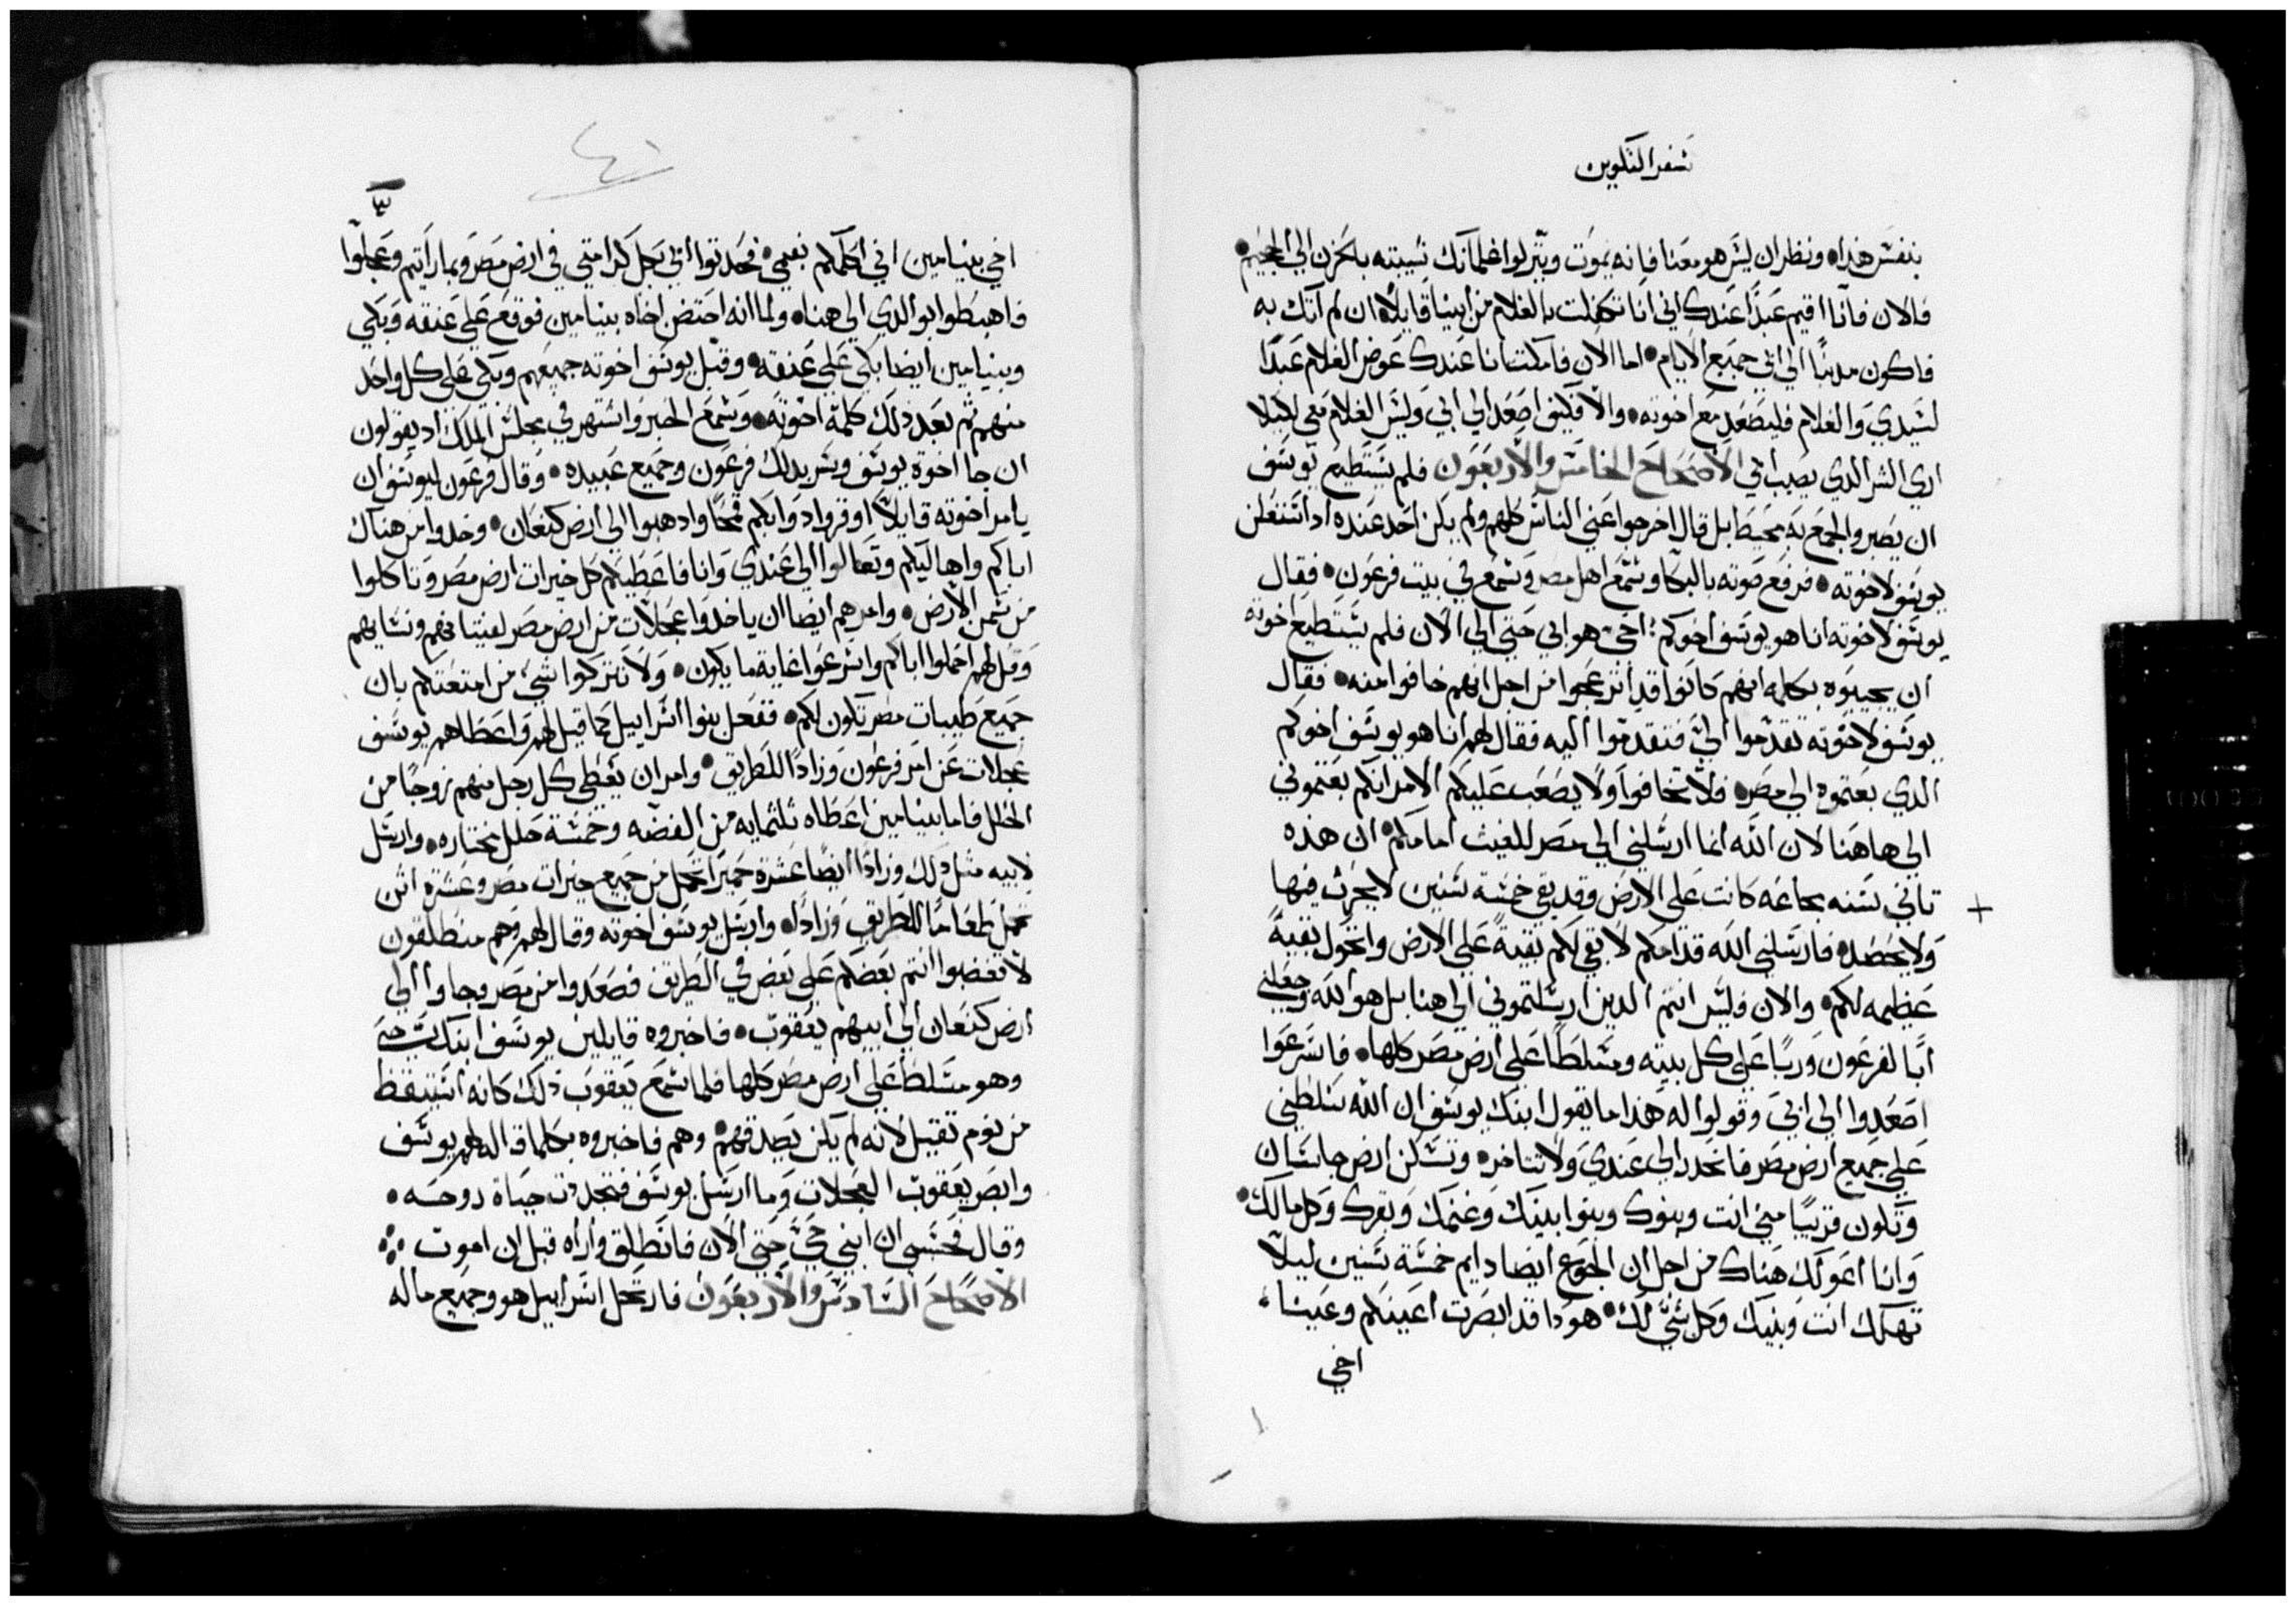 سفر التكوين
بنفس هذا ونظر ان ليس هو معنا فانه يموت وينزلوا غلمانك شيبته بالحزن الي الجحيم
فالان فانا اقيم عبدًا عندك اني انا تكفلت بالغلام من ابينا قايلاً ان لم آتك به
فاكون مدنبًا الي ابي جميع الايام اما الان فامكث انا عندك عوض الغلام عبدًا
لسيدي والغلام فليصعد مع اخوته والا فكيف اصعد الي ابي وليس الغلام معي ليلا
اري الشر الدي يصيب ابي الاصحاح الخامس والاربعون فلم يستطيع يوسف
ان يصبر والجمع به محيط بل قال اخرجوا عني الناس كلهم ولم يكن احد عنده اد استعلن
يوسف لاخوته فرفع صوته بالبكا وسمع اهل مصر وسمع في بيت فرعون فقال
يوسف لاخوته انا هو يوسف اخوكم احي هو ابي حتي الي الان فلم يستطيع اخوته
ان يجيبوه بكلمه انهم كانوا قد انزعجوا من اجل انهم خافوا منه فقال
يوسف لاخوته تقدموا الي فتقدموا اليه فقال لهم انا هو يوسف اخوكم
الدي بعتموه الي مصر فلا تخافوا ولا يصعب عليكم الامر انكم بعتموني
الي هاهنا لان الله انما ارسلني الي مصر للغيث امامكم ان هذه
تاني سنه مجاعه كانت علي الارض وقد بقي خمسة سنين لا يحرث فيها
ولا يحصد فارسلني الله قدامكم لابقي لكم بقية علي الارض واتحول بقية
عظيمه لكم والان فليس انتم الدين ارسلتموني الي هنا بل هو الله وجعلني
أبًا لفرعون وربًا علي كل بيته ومسلطًا علي ارض مصر كلها فاسرعوا
اصعدوا الي ابي وقولوا له هذا ما يقول ابنك يوسف ان الله سلطني
علي جميع ارض مصر فانحدر الي عندي ولا تتاخر وتسكن ارض جاسان
وتكون قريبًا مني انت وبنوك وبنوا بنيك وغنمك وبقرك وكل مالك
وانا اعولك هناك من اجل ان الجوع ايضا دايم خمسة سنين ليلاً
تهلك انت وبنيك وكل شي لك هودا قد ابصرت اعينكم وعينا
اخي
٤١
اخي بنيامين اني اكلمكم بفمي فحدثوا ابي بجل كرامتي في ارض مصر وبما رأيتم وعجلوا
فاهبطوا بوالدي الي هنا ولما انه احتضن اخاه بنيامين فوقع علي عنقه وبكي
وبنيامين ايضا بكي علي عنقه وقبل يوسف اخوته جميعهم وبكي علي كل واحد
منهم تم بعد ذلك كلمه اخوته وسمع الخبر واشتهر في مجلس الملك اد يقولون
ان جا اخوة يوسف وسر بدلك فرعون وجميع عبيده وقال فرعون ليوسف ان
يامر اخوته قايلاً اوقروا دوابكم قمحًا وادهبوا الي ارض كنعان وخدوا من هناك
اباكم واهاليكم وتعالوا الي عندي وانا فاعطيكم كل خيرات ارض مصر وتاكلوا
من سمن الارض وامرهم ايضا ان ياخدوا عجلات من ارض مصر لفتيانهم ونسايهم
وقل لهم احملوا اباكم واسرعوا غاية ما يكون ولا تتركوا شي من امتعتكم بان
جميع طيبات مصر تكون لكم ففعل بنوا اسراييل كما قيل لهم واعطاهم يوسف
عجلات عن امر فرعون وزادًا للطريق وامر ان يعطي كل رجل منهم زوجًا من
الحلل فاما بنيامين اعطاه ثلثمايه من الفضه وخمسة حلل مختاره وارسل
لابيه مثل ذلك وزادًا ايضًا عشرة حميرًا تحمل من جميع خيرات مصر وعشرة اتن
تحمل طعامًا للطريق وزادًا وارسل يوسف اخوته وقال لهم وهم منطلقون
لا تغضبوا انتم بعضكم علي بعض في الطريق فصعدوا من مصر وجاوا الي
ارض كنعان الي ابيهم يعقوب فاخبروه قايلين يوسف ابنك حي
وهو مسلط علي ارض مصر كلها فلما سمع يعقوب ذلك كانه استيقظ
من نوم تقيل لانه لم يكن يصدقهم وهم فاخبروه بكلما قاله لهم يوسف
وابصر يعقوب العجلات وما ارسل يوسف فتجددت حياة روحه
وقال فحسبي ان ابني حي حتي الان فانطلق وأراه قبل ان اموت
الاصحاح السادس والاربعون فارتحل اسراييل هو وجميع ما له